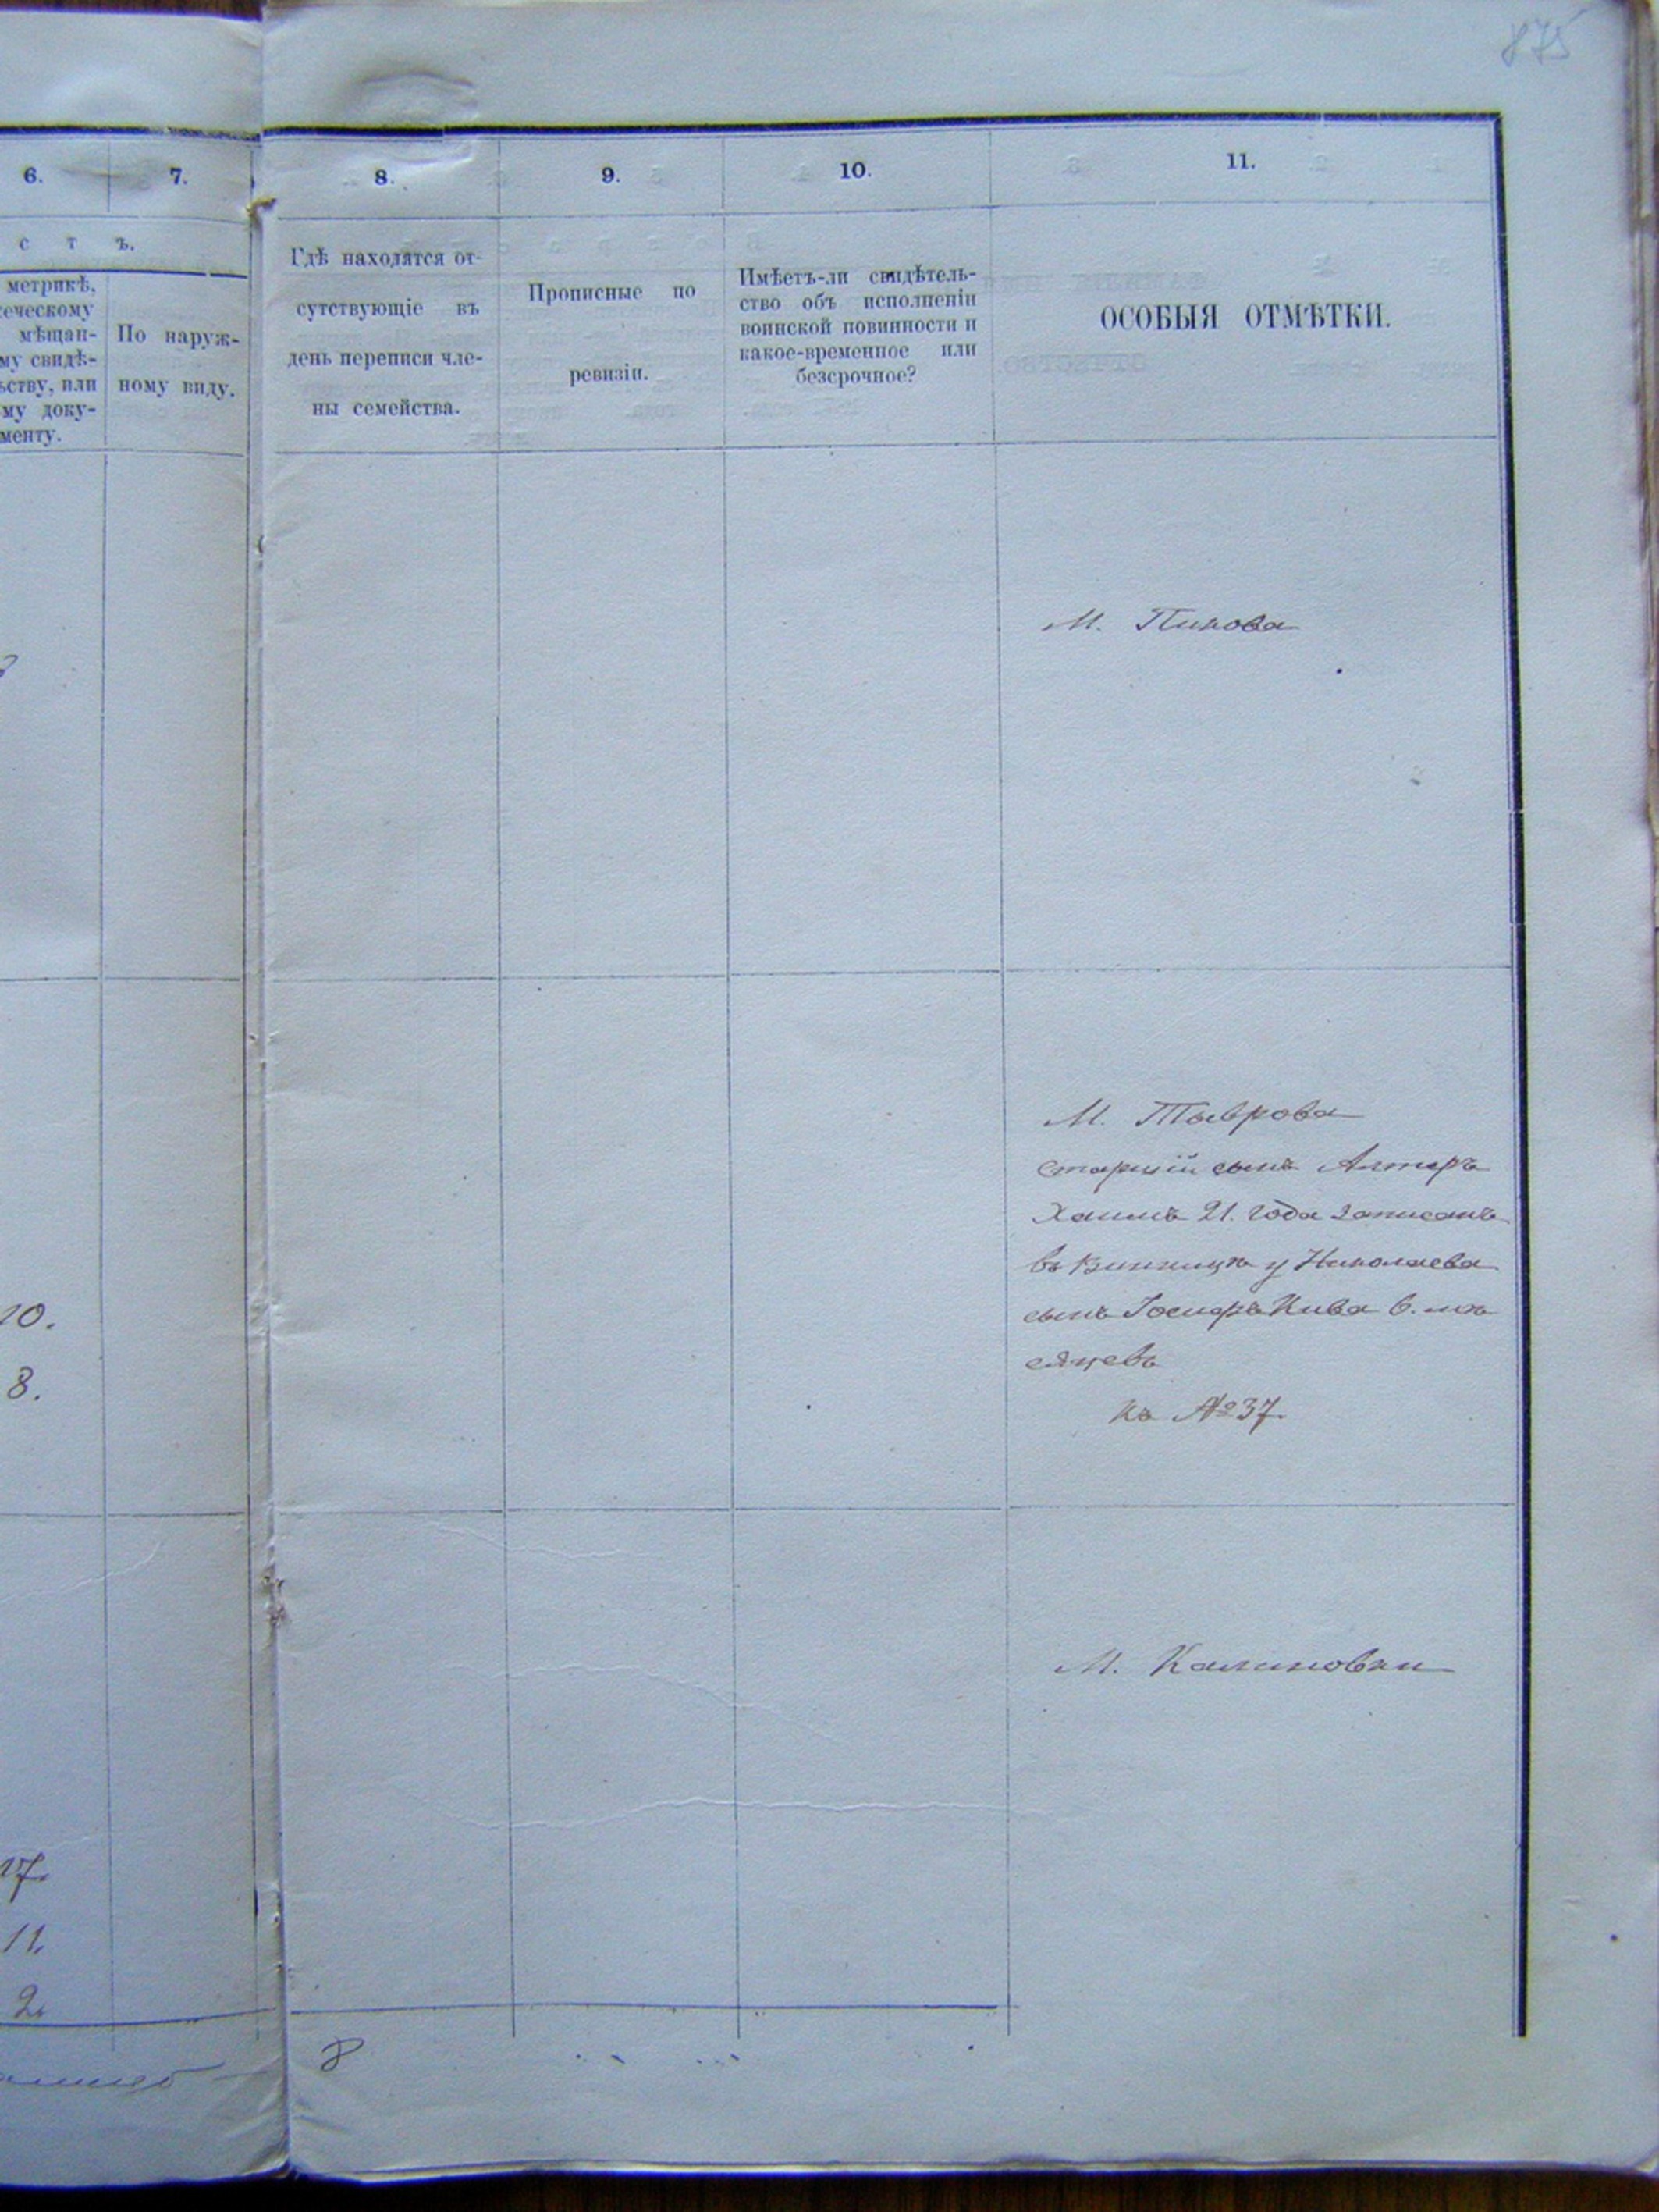 875
6.
7.
8.
9.
10.
11.
с т ъ.
метрикѣ,
мѣщан-
му свидѣ-
ству, или
му доку-
менту.
По наруж-
ному виду.
Гдѣ находятся от-
сутствующіе въ
день переписи чле-
ны семейства.
Прописные по
ревизіи.
Имѣетъ-ли свидѣтель-
ство объ исполненіи
воинской повинности и
какое-временное или
безсрочное?
ОСОБЫЯ ОТМѢТКИ.
М. Пикова
М. Тыврова
старшій сынъ Алтеръ
Хаимъ 21. года записанъ
въ Винницѣ у Николаева
сынъ Іосифъ Кива 6. мѣ
сяцевъ
къ № 37.
10.
8.
М. Калиновки
17.
11.
2.
8